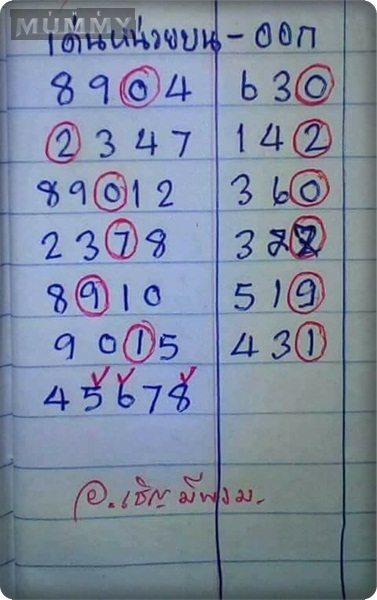 THE MUMMY
เด่นหน่วยบน - ออก
8 9 0 4 6 3 0
2 3 4 7 1 4 2
8 9 0 1 2 3 6 0
2 3 7 8 3 2
8 9 1 0 5 1 9
9 0 1 5 4 3 1
4 5 6 7 8
อ. เชิญ มีพวม.